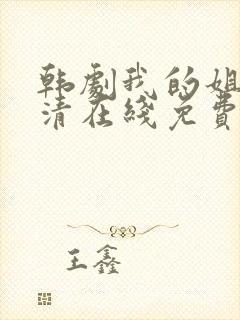 韩剧我的姐
清在线免费
王鑫